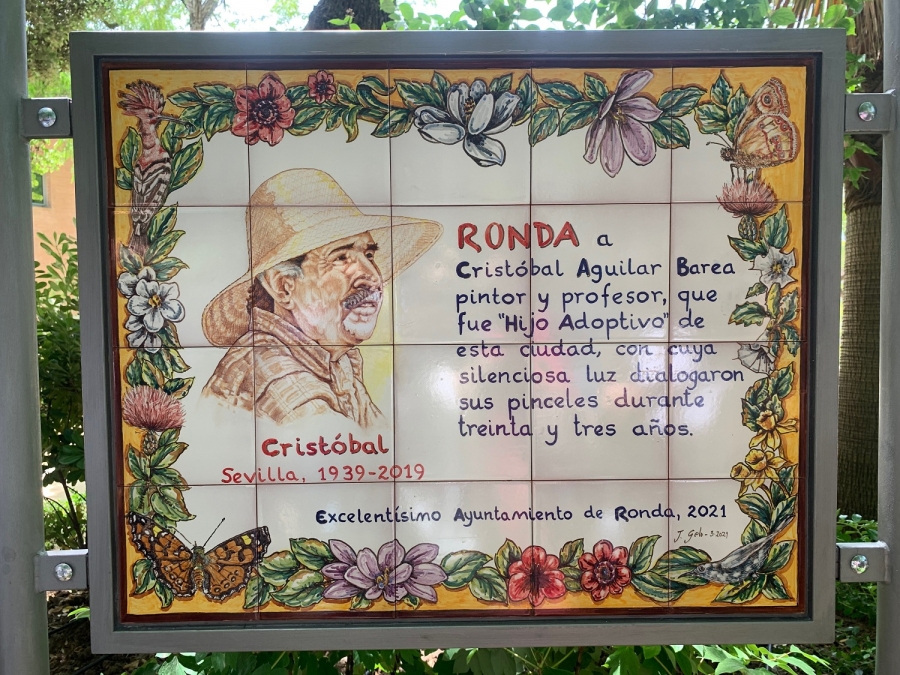 RONDA a
Cristóbal Aguilar Barea
pintor y profesor, que
fue "Hijo Adoptivo" de
esta ciudad, con cuya
silenciosa luz dialogaron
sus pinceles durante
treinta y tres años.
Cristóbal
Sevilla, 1939-2019
Excelentísimo Ayuntamiento de Ronda, 2021